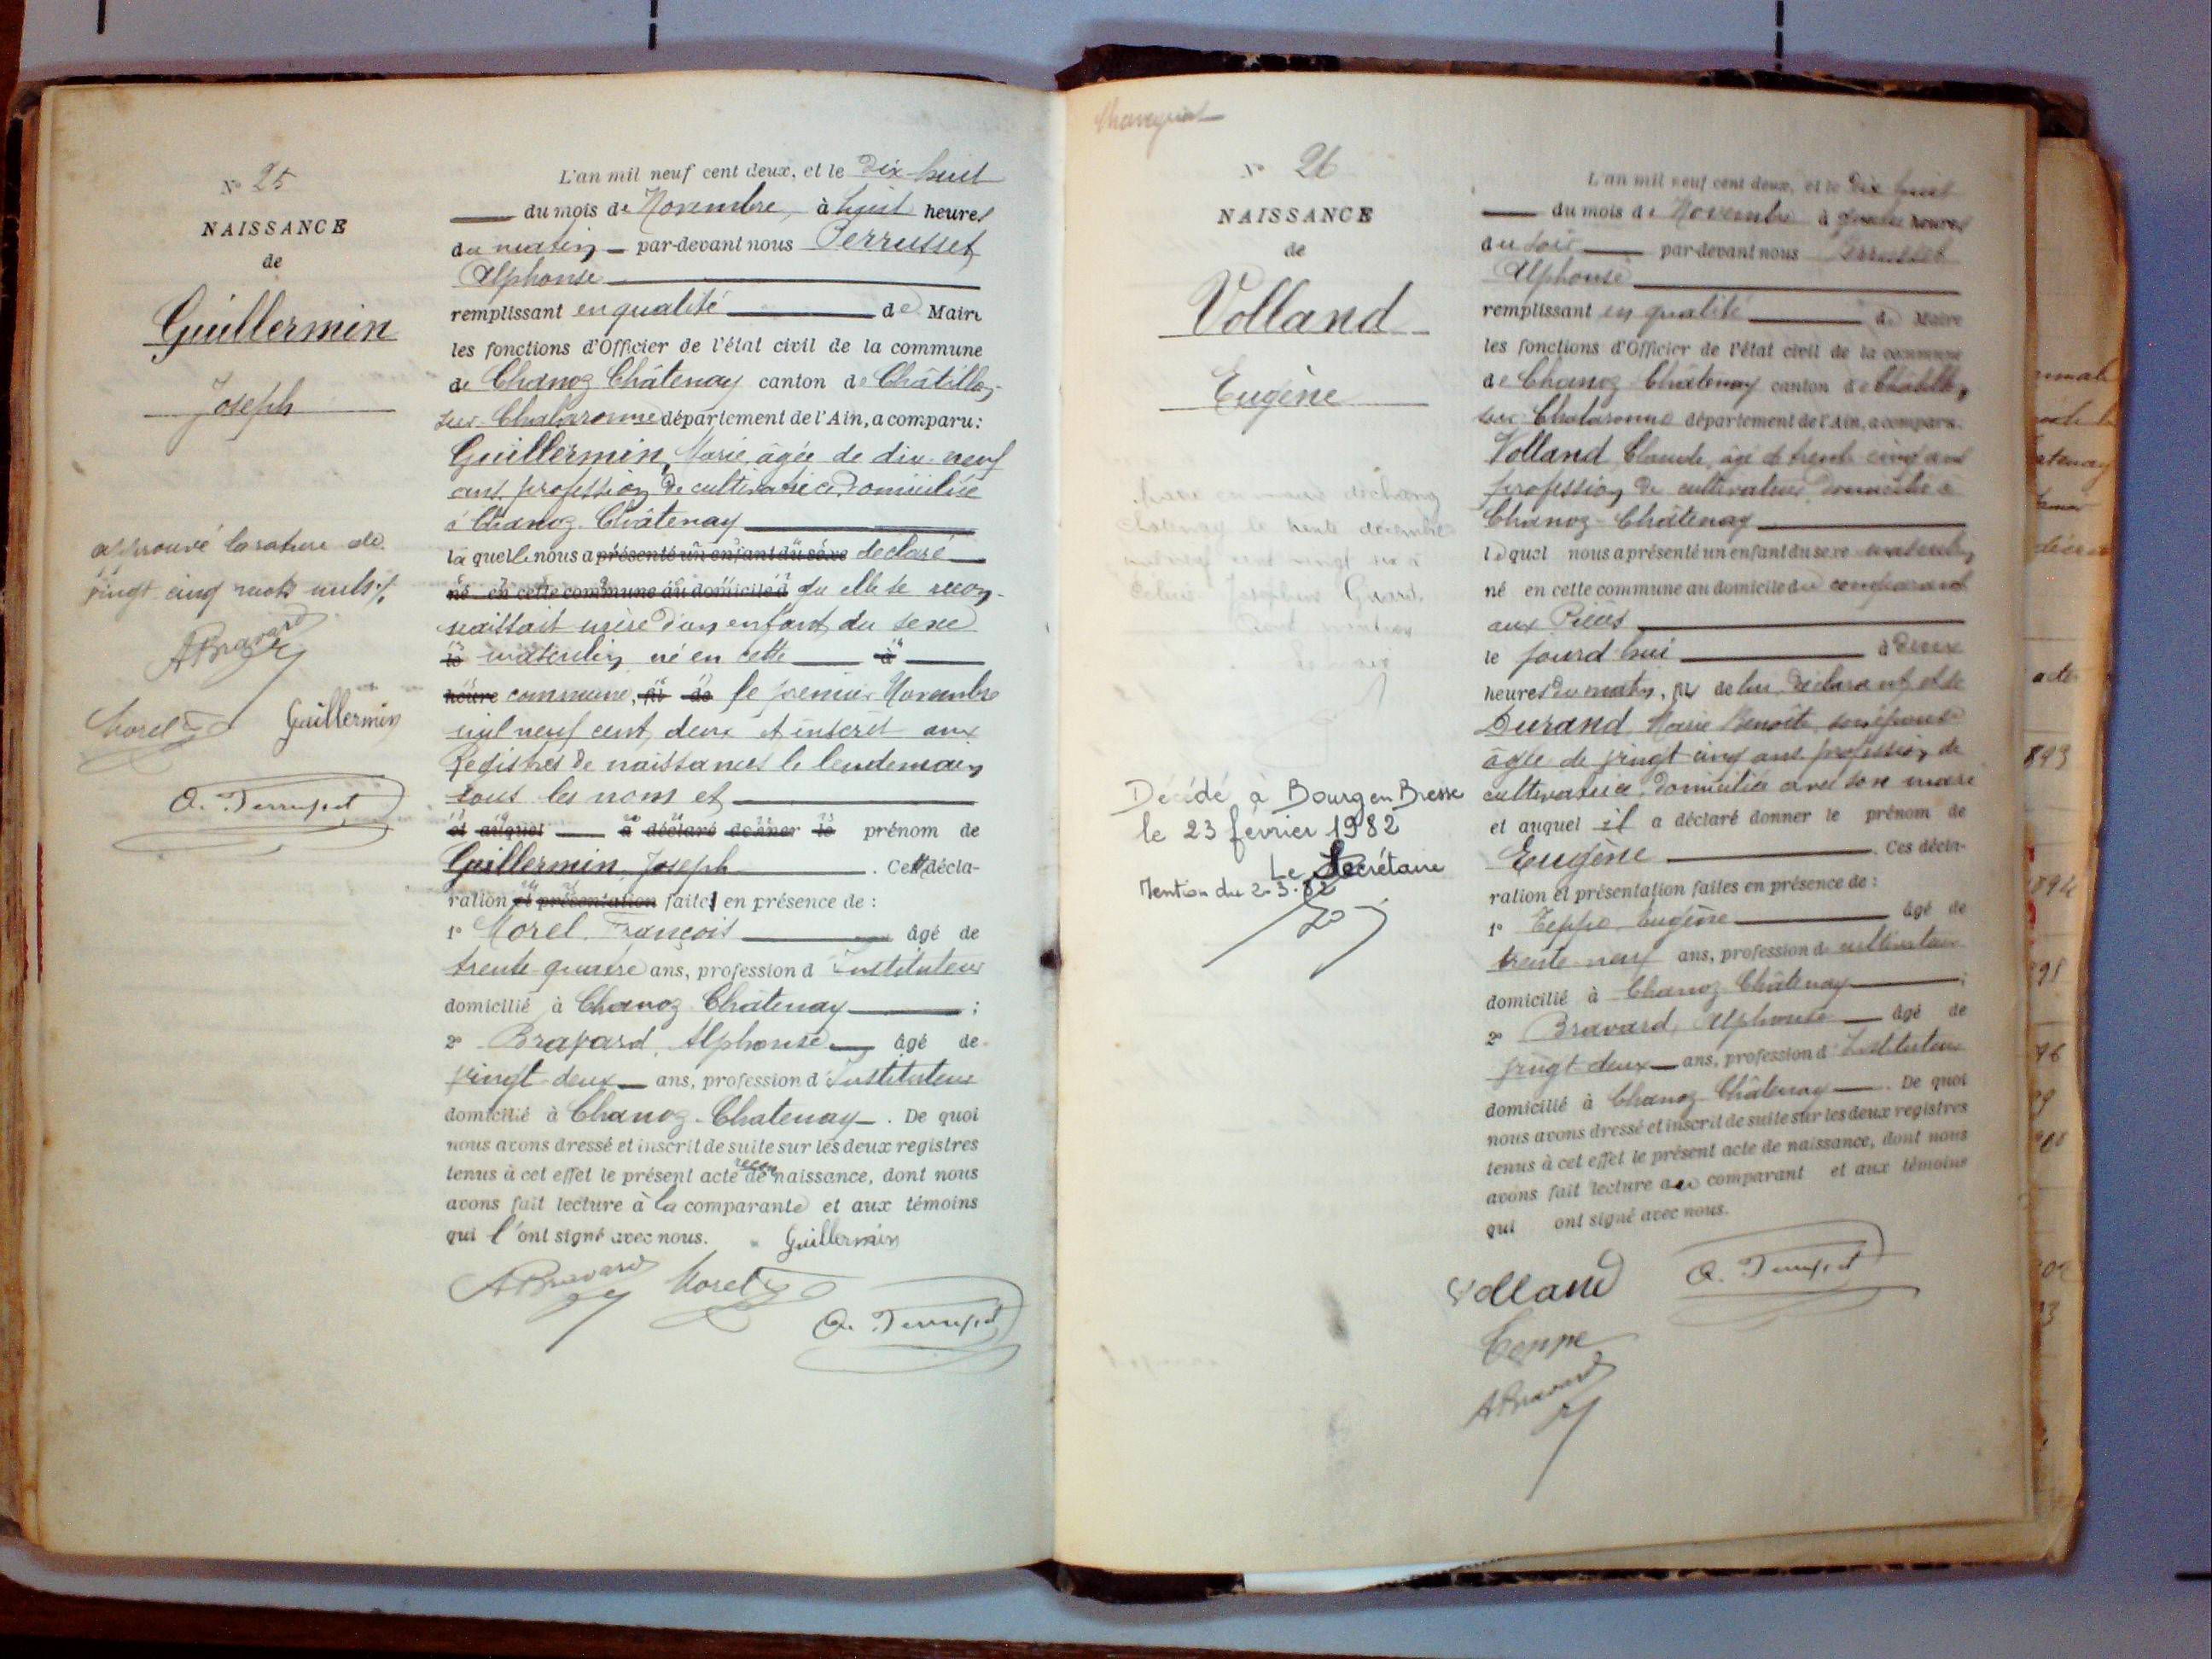 N° 25
NAISSANCE
de
Guillermin
Joseph
approuvé la rature de
vingt cinq mots nuls
ABravard
Morel Guillermin
A. Perrusset
L'an mil neuf cent deux, et le dix-huit
du mois de Novembre, à huit heures
du matin par-devant nous Perrusset
Alphonse
remplissant en qualité de Maire
les fonctions d'Officier de l'état civil de la commune
de Chanoz Châtenay canton de Châtillon-
sur-Chalaronne département de l'Ain, a comparu:
Guillermin, Marie, âgée de dix-neuf
ans, profession de cultivatrice, domiciliée
à Chanoz-Châtenay
la quelle nous a présenté un enfant du sexe déclaré
né en cette commune au domicile d qu'elle se recon-
naissait mère d'un enfant du sexe
le masculin né en cette à
heure commune, fils de le premier Novembre
mil neuf cent deux et inscrit aux
Registres de naissances le lendemain
sous les nom et
et auquel a déclaré donner le prénom de
Guillermin Joseph. Cette décla-
ration et présentation faites en présence de :
1° Morel, François âgé de
trente quatre ans, profession d'instituteur
domicilié à Chanoz Châtenay ;
2° Bravard, Alphonse âgé de
vingt-deux ans, profession d'Instituteur
domicilié à Chanoz-Chatenay. De quoi
nous avons dressé et inscrit de suite sur les deux registres
tenus à cet effet le présent acte de reconnaissance, dont nous
avons fait lecture à la comparante et aux témoins
qui l'ont signé avec nous. Guillermin
ABravard Morel
A. Perrusset
N° 26
NAISSANCE
de
Volland
Eugène
Décédé à Bourg en Bresse
le 23 février 1982
Le Secrétaire
Mention du 2.3.82
L'an mil neuf cent deux, et le dix huit
du mois de Novembre à quatre heures
du soir par-devant nous Perrusset
Alphonse
remplissant en qualité de Maire
les fonctions d'Officier de l'état civil de la commune
de Chanoz-Châtenay canton de Châtillon
sur Chalaronne département de l'Ain, a comparu:
Volland Claude, âgé de trente cinq ans
profession de cultivateur, domicilié à
Chanoz-Châtenay
lequel nous a présenté un enfant du sexe masculin
né en cette commune au domicile du comparant
aux
le jourd'hui à deux
heures du matin, fils de lui déclarant et de
Durand, Marie Benoîte, son épouse
âgée de vingt cinq ans, profession de
cultivatrice, domiciliée avec son mari
et auquel il a déclaré donner le prénom de
Eugène. Ces décla-
ration et présentation faites en présence de :
1° Teppe Eugène âgé de
trente-neuf ans, profession de cultivateur
domicilié à Chanoz-Châtenay ;
2° Bravard, Alphonse âgé de
vingt-deux ans, profession d'Instituteur
domicilié à Chanoz-Châtenay. De quoi
nous avons dressé et inscrit de suite sur les deux registres
tenus à cet effet le présent acte de naissance, dont nous
avons fait lecture au comparant et aux témoins
qui ont signé avec nous.
Volland A. Perrusset
Teppe
ABravard